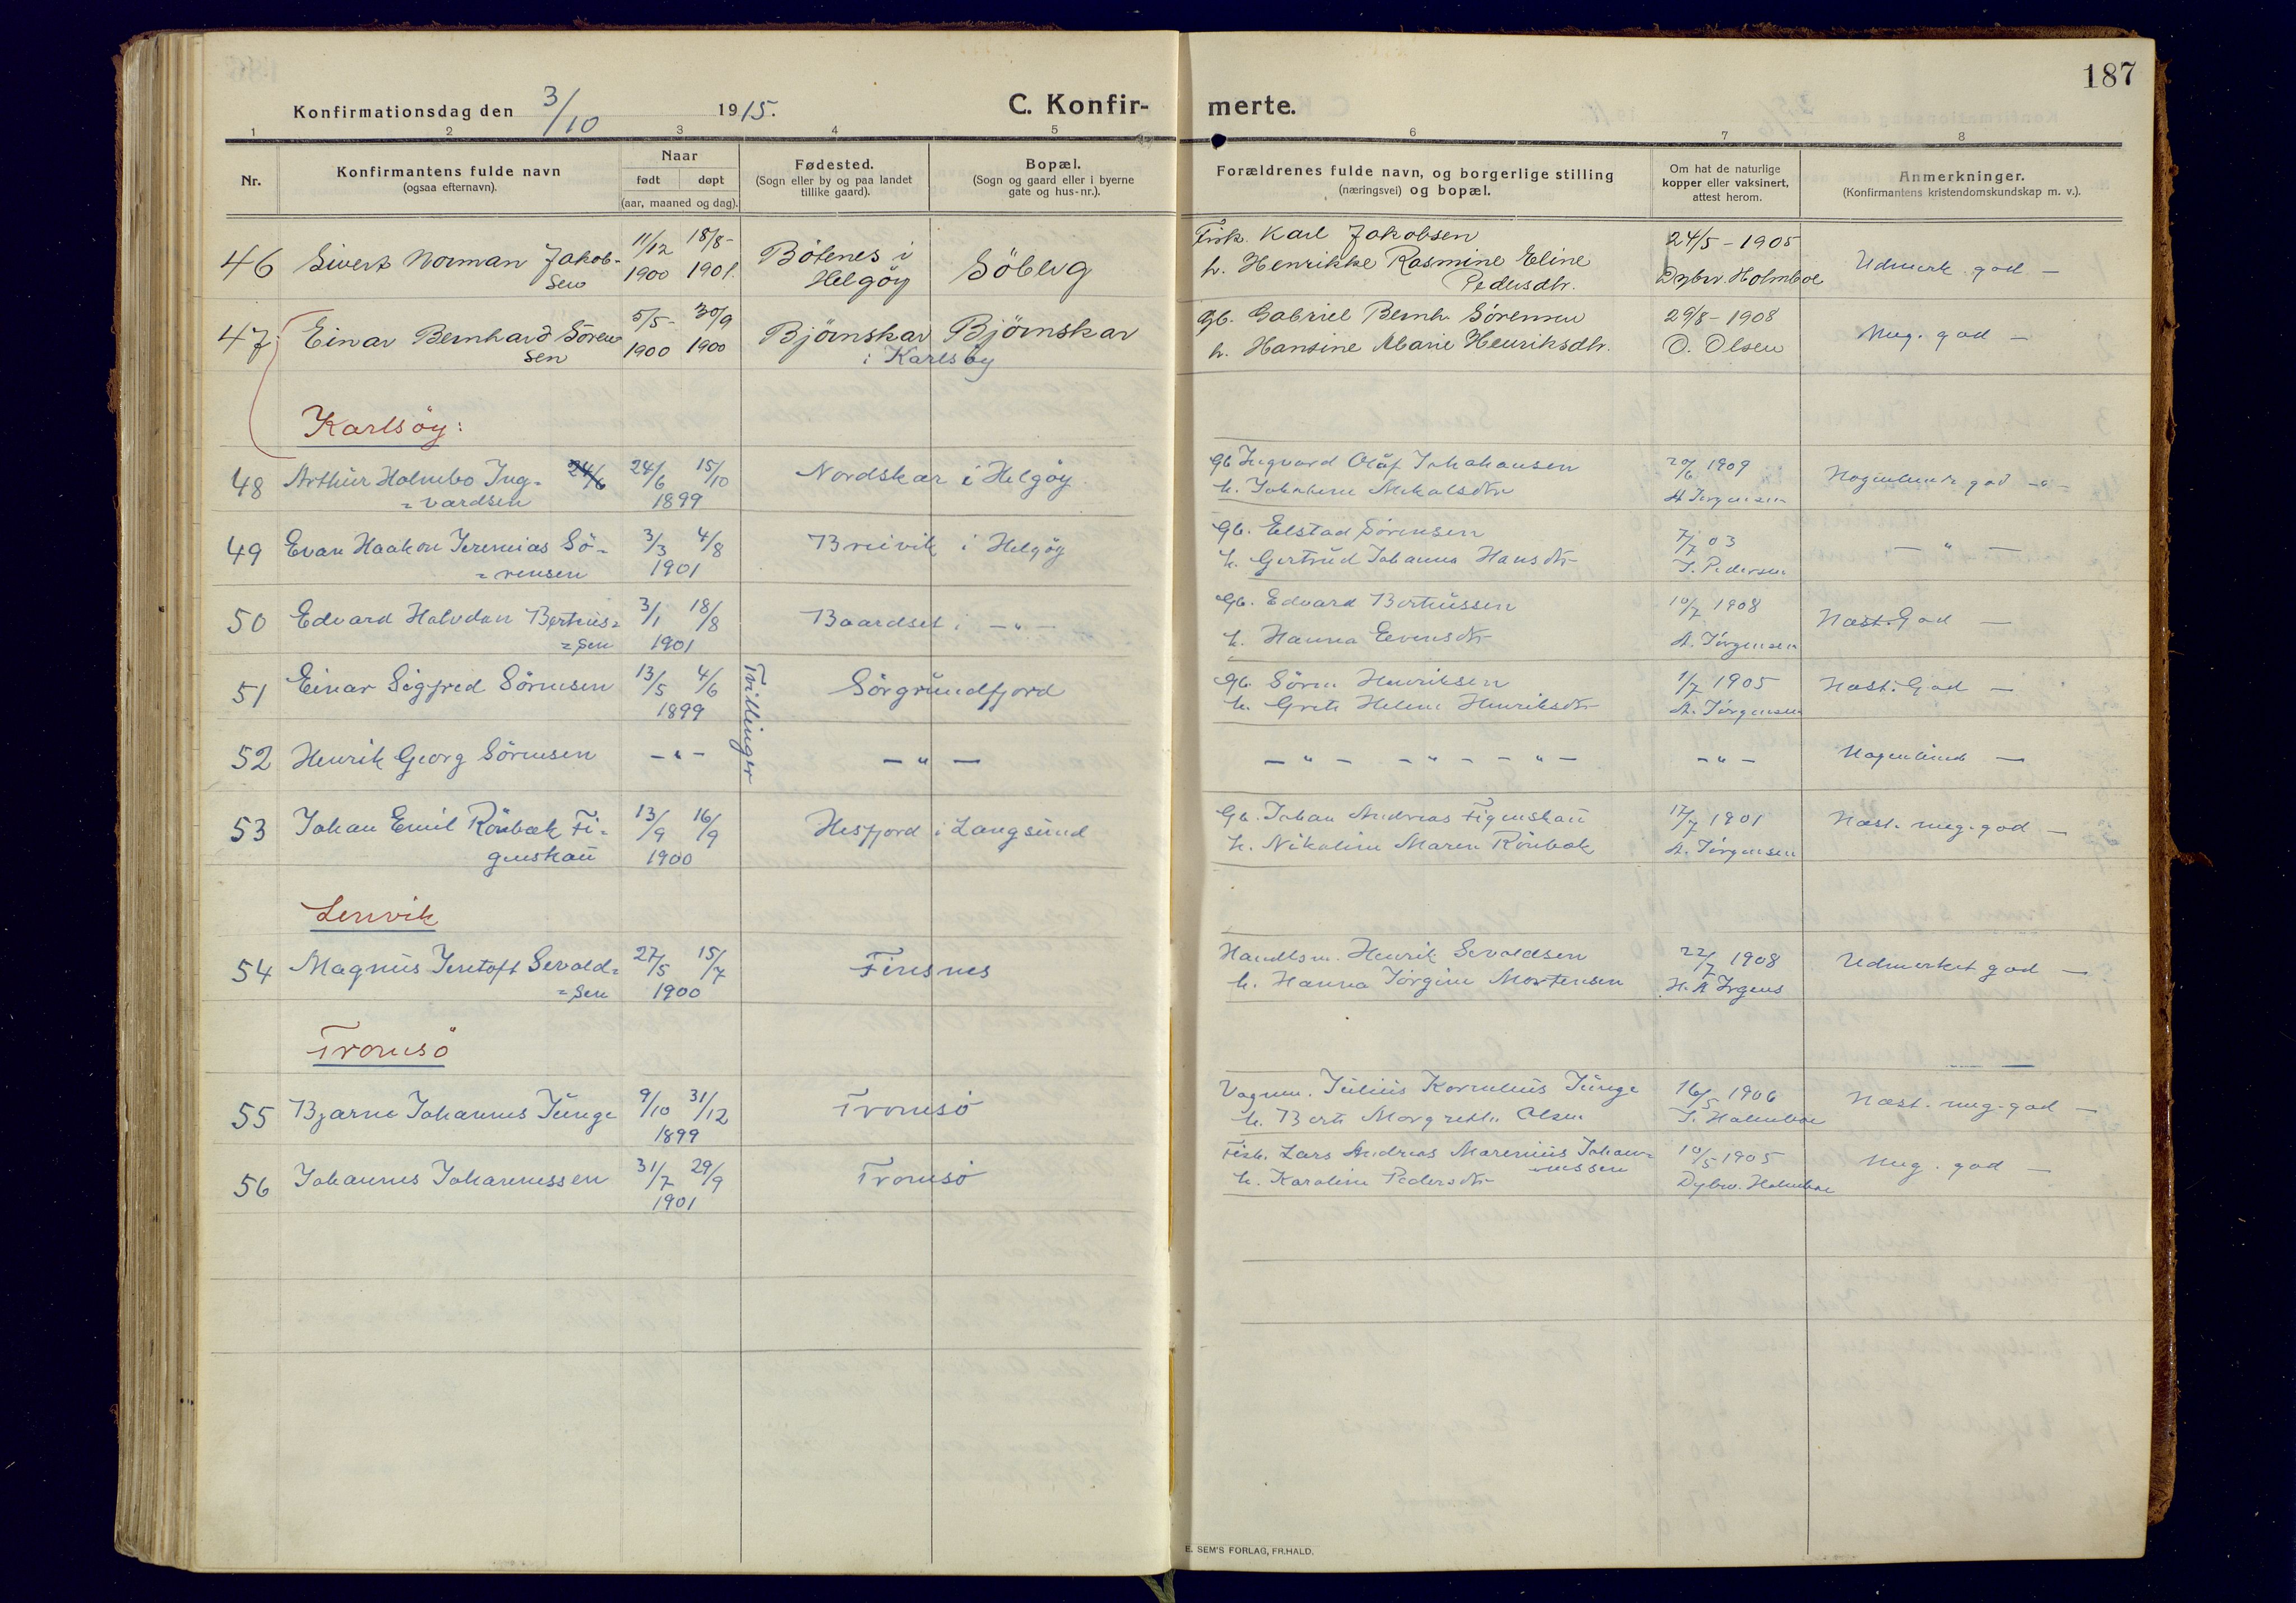 187
Konfirmationsdag den 3/10 1915. C. Konfir- merte.
1 2 3 4 5 6 7 8
Nr.
Konfirmantens fulde navn
(ogsaa efternavn).
Naar
født døpt
(aar, maaned og dag).
Fødested.
(Sogn eller by og paa landet
tillike gaard).
Bopæl.
(Sogn og gaard eller i byerne
gate og hus-nr.).
Forældrenes fulde navn, og borgerlige stilling
(næringsvei) og bopæl.
Om hat de naturlige
kopper eller vaksinert,
attest herom.
Anmerkninger.
(Konfirmantens kristendomskundskap m. v.).
46 Sivert Norman Jakob- 11/12 18/8- Bötenes i Söblvg Fisk. Karl Jakobsen 24/5 - 1905 Udmerk. god -
sen 1900 1901. Helgöy h. Henrikke Rasmine Eline Dybw. Holmboe
Pedersdtr.
47 Einar Bernhard Sören 5/5- 30/9 Björnskar Björnskar Gb. Gabriel Bernh. Sörensen 29/8 - 1908 Meg. god -
sen 1900 1900 i Karlsöy h. Hansine Marie Henriksdtr. O. Olsen
Karlsöy:
48 Arthur Holmbo Ing- 24/6 24/6 15/10 Nordskar i Helgöy Gb Ingvard Olaf Johansen 20/6 1909 Nogenlunde god -"-
= vardsen 1899 h. Mikalsdtr A Jörgensen
49 Evan Haakon Jeremias Sö- 3/3 4/8 Breivik i Helgöy Gb. Elstad Sörensen 7/7 03 - " -
= rensen 1901 h. Gertrud Johanna Hansdtr J. Pedersen
50 Edvard Halvdan Bertheus= 3/1 18/8 Baardset i -"- Gb. Edvard Bertheussen 10/7 1908 Næst. God -
= sen 1901 h. Hanna Evensdtr A. Jörgensen
51 Einar Sigfred Sörensen 13/5 4/6 Sörgrundfjord Gb. Sören Henriksen 1/7 1905 Næst. God -
1899 h. Grete Helene Henriksdtr A. Jörgensen
Tvillinger
52 Henrik Georg Sörensen -"- - " - - " - - " - - " - -"- Nogenlund -
53 Johan Emil Rönbæk Fi- 13/9 16/9 Hesfjord i Langsund Gb. Johan Andreas Figenskau 17/7 1901 Næst. meg. god -
genskau 1900 h. Nikoline Maren Rönbæk A. Jörgensen
Lenvik
54 Magnus Jentoft Sevald= 27/5 15/7 Finsnes Handlsm. Henrik Sevaldsen 22/7 1908 Udmerket god -
= sen 1900 h. Hanna Jörgine Mortensen H. A Irgens
Tromsö
55 Bjarne Johannes Junge 9/10 31/12 Tromsö Vognm. Julius Kornelius Junge 16/5 1906 Næst. meg. god -
1899 h. Berte Margrethe Olsen J. Holmboe
56 Johannes Johannessen 31/7 29/9 Tromsö Fisk. Lars Andreas Marenius Johan= 10/5 1905 Meg. god -
1901 nessen
h. Karoline Pedersdtr Dybw. Holmboe
E. SEM'S FORLAG, FR.HALD.